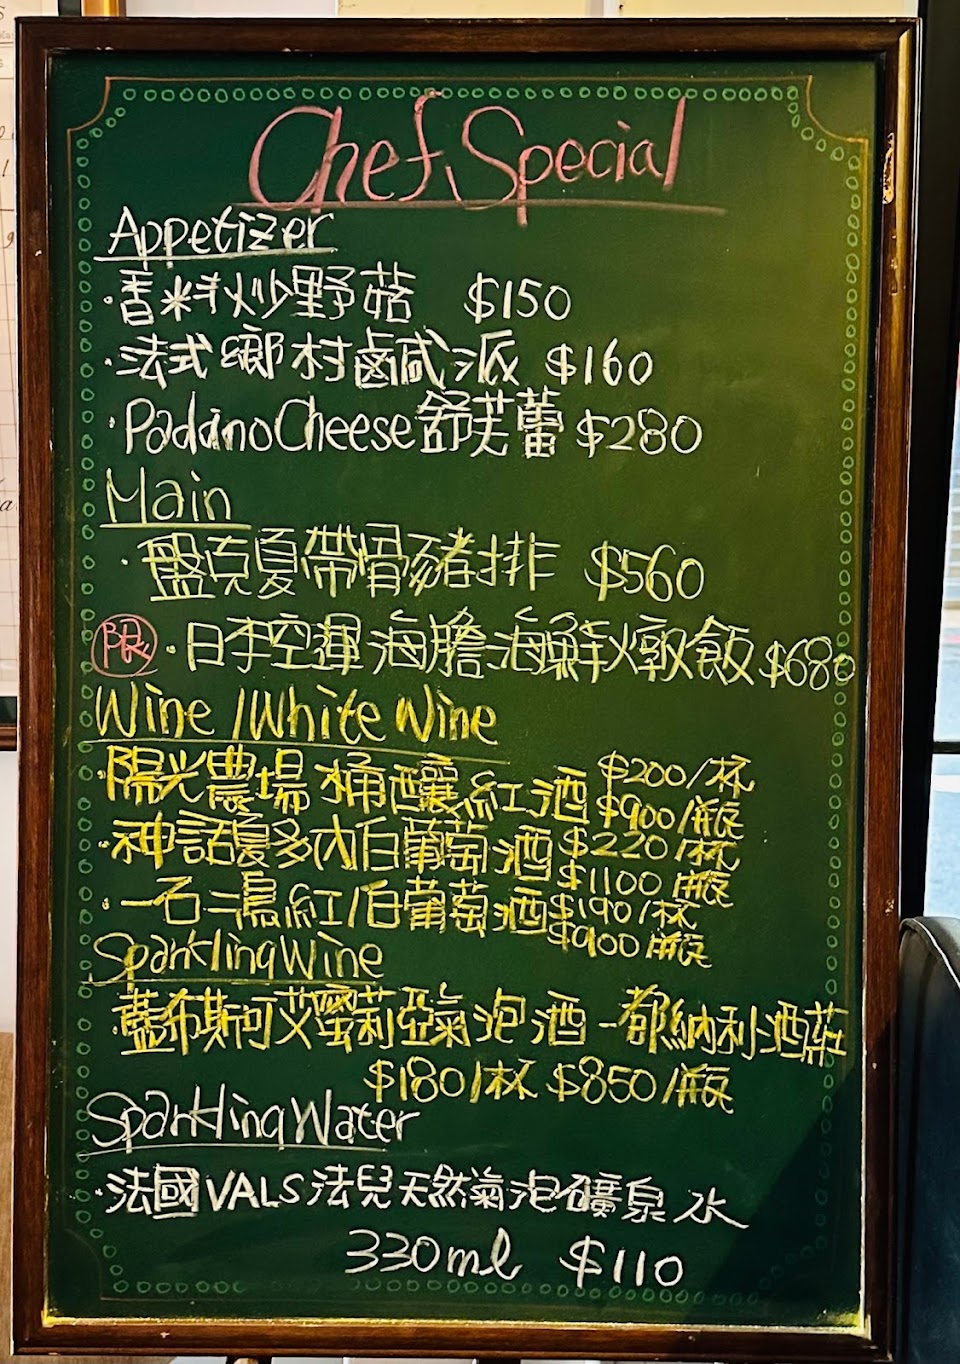 Chef Special
Appetizer
·香料炒野菇 $150
·法式鄉村鹹派 $160
·Padano Cheese 舒芙蕾 $280
Main
·盤克夏帶骨豬排 $560
限 ·日本空運海膽海鮮燉飯 $680
Wine / White Wine
·陽光農場 桶釀紅酒 $200/杯
$900/瓶
·神話夏多內白葡萄酒 $220/杯
$1100/瓶
·一石二鳥紅/白葡萄酒 $190/杯
$900/瓶
Sparkling Wine
·蓋布斯可艾蜜莉亞氣泡酒-都納利酒莊
$180/杯 $850/瓶
Sparkling Water
·法國VALS法兒天然氣泡礦泉水
330ml $110